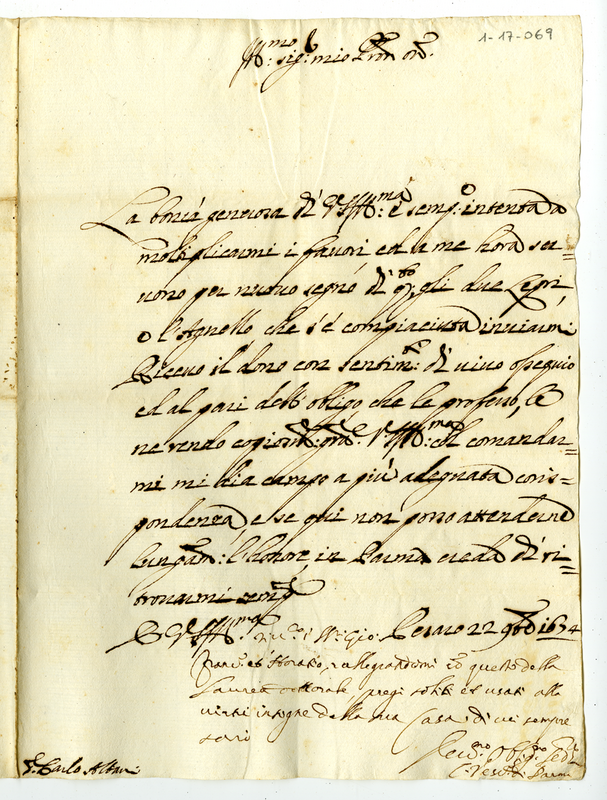 1-17-069
Ill.mo sig.r mio P.ron oss.
La bontà generosa di V.S. Ill.ma è semp.e intenta a
moltiplicarmi i favori ed a me hora ser=
vono per nuovo segno di q.sto gli due Lepri
e l'Agnello che s'è compiaciuta inviarmi
Ricevo il dono con sentim.to di vivo ossequio
ed al pari dell'obligo che le professo, le
ne rendo copiose gra.e V.S. Ill.ma col comandar=
mi mi dia campo a più adeguata coris=
pondenza, e se qui non posso attenderne
lungam.te l'honore, in Parma creda di ri=
trovarmi semp.e
D V.S. Ill.ma Pesaro 22 9bre 1674
Franc.o et Horatio, rallegrandomi co questo della
Laurea dottorale, pregi soliti et usati alla
virtù insigne della sua Casa, di cui sempre
sarò
Ser.re Obl.mo
Il Vesc.o di Parma
S. Carlo Altani